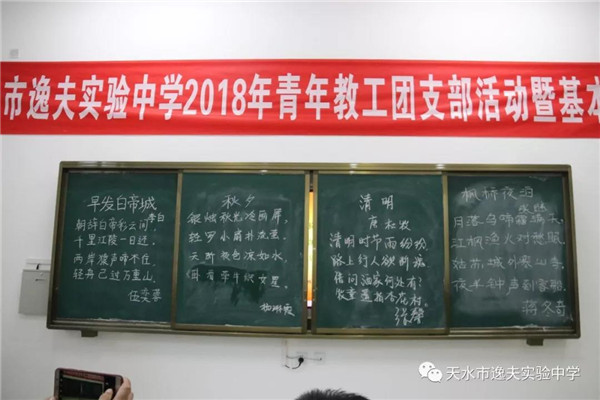 市逸夫实验中学2018年青年教工团支部活动暨基本
早发白帝城
李白
朝辞白帝彩云间,
千里江陵一日还。
两岸猿声啼不住
轻舟已过万重山。
伍奕蓉
秋夕
银烛秋光冷画屏,
轻罗小扇扑流萤。
天阶夜色凉如水,
卧看牵牛织女星。
清明
唐 杜牧
清明时节雨纷纷,
路上行人欲断魂。
借问酒家何处有?
牧童遥指杏花村。
枫桥夜泊
张继
月落乌啼霜满天,
江枫渔火对愁眠。
姑苏城外寒山寺,
夜半钟声到客船。
蒋冬奇
天水市逸夫实验中学